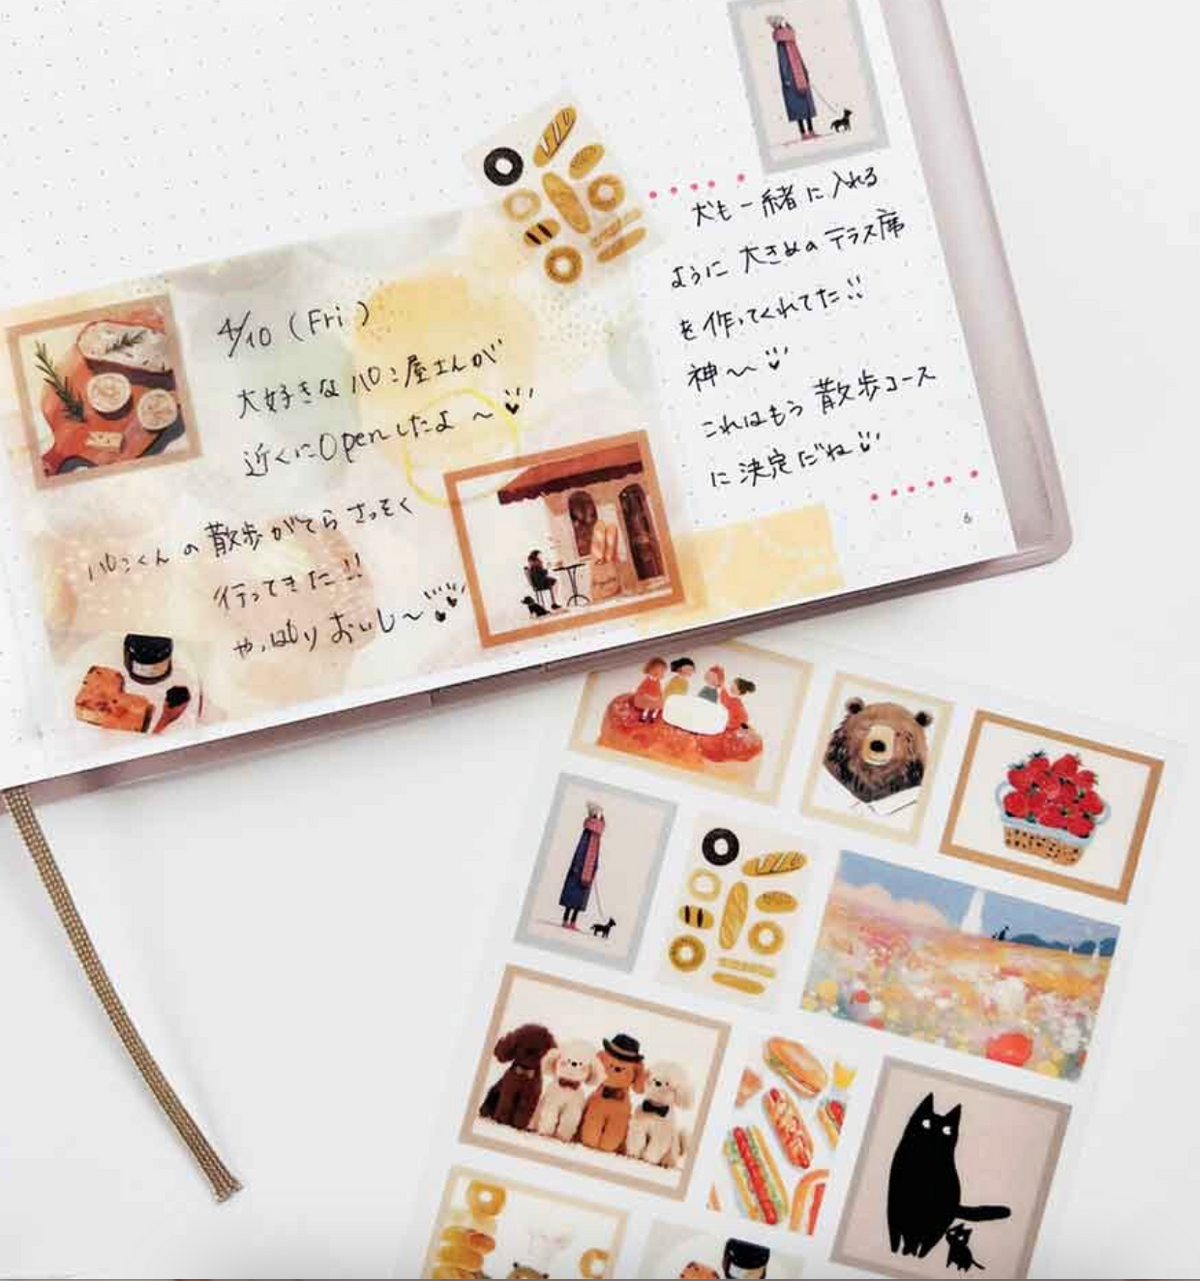 4/10 (Fri)
大好きなパン屋さんが
近くにOpenしたよ〜
パンくんの散歩がてらさっそく
行ってきた!!
やっぱりおいし〜
犬も一緒に入れる
ように大きめのテラス席
を作ってくれてた!!
神〜
これはもう散歩コース
に決定だね
6